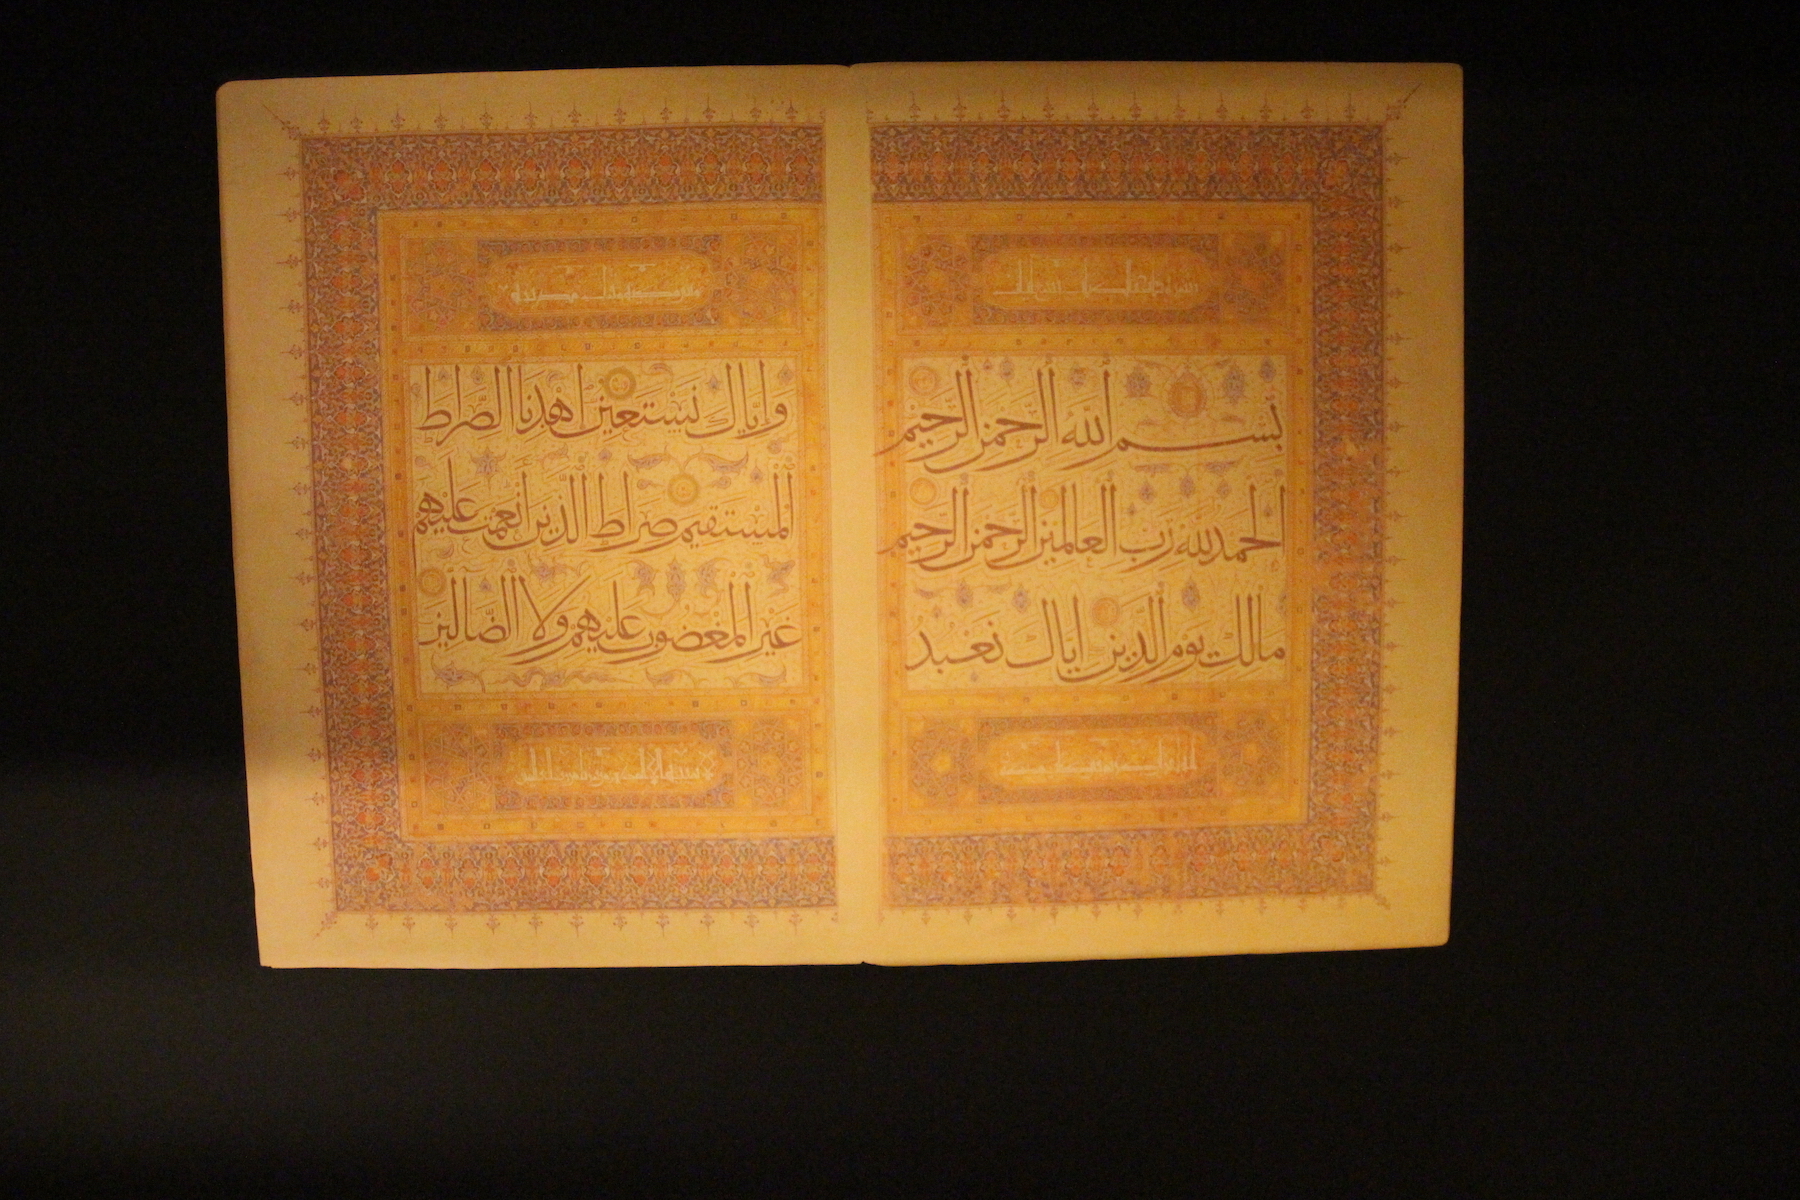 بسم الله الرحمن الرحيم
الحمد لله رب العالمين الرحمن الرحيم
مالك يوم الدين اياك نعبد
وإياك نستعين اهدنا الصراط
المستقيم صراط الذين أنعمت عليهم
غير المغضوب عليهم ولا الضالين